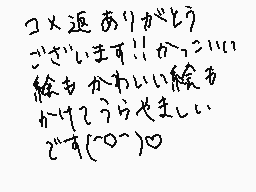 コメ返ありがとう
ございます!!かっこいい
絵もかわいい絵も
かけてうらやましい
です(^O^)♡